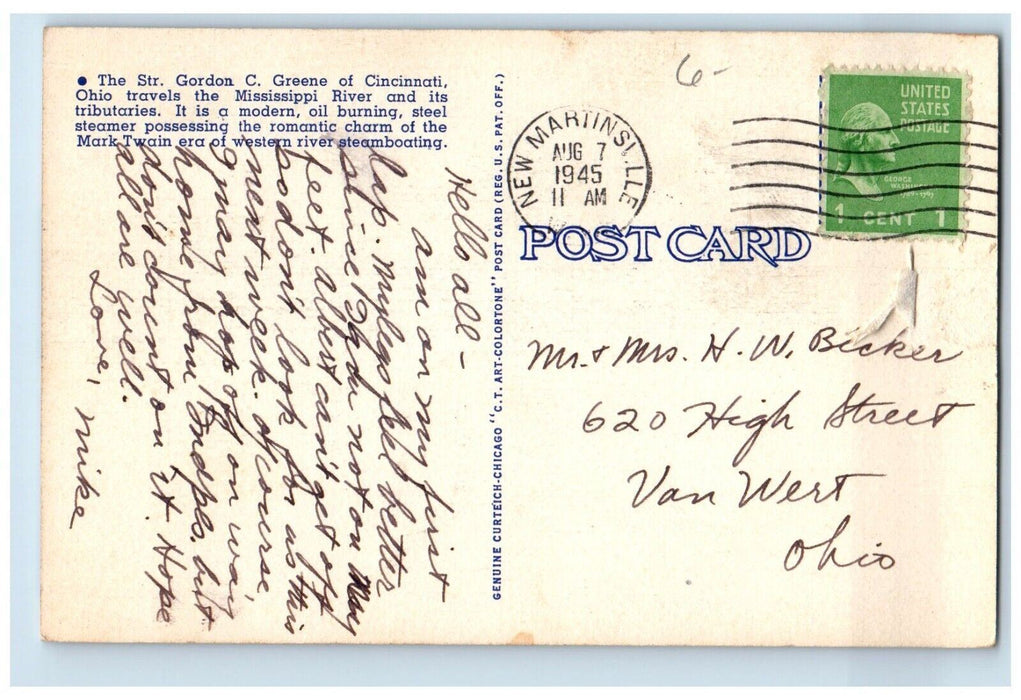 ● The Str. Gordon C. Greene of Cincinnati,
Ohio travels the Mississippi River and its
tributaries. It is a modern, oil burning, steel
steamer possessing the romantic charm of the
Mark Twain era of western river steamboating.
Hello all -
am on my first
lap. My legs feel better
since I am not on my
feet. Albert can't get off
so don't look for us this
next week. Of course
I may hop off on way
home from Indpls. but
don't count on it. Hope
all are well.
Love,
Mike
GENUINE CURTEICH-CHICAGO "C.T. ART-COLORTONE" POST CARD (REG. U.S. PAT. OFF.)
6-
NEW MARTINSVILLE
AUG 7
1945
11 AM
UNITED
STATES
POSTAGE
GEORGE
1 CENT 1
POST CARD
Mr. + Mrs. H. W. Becker
620 High Street
Van Wert
Ohio